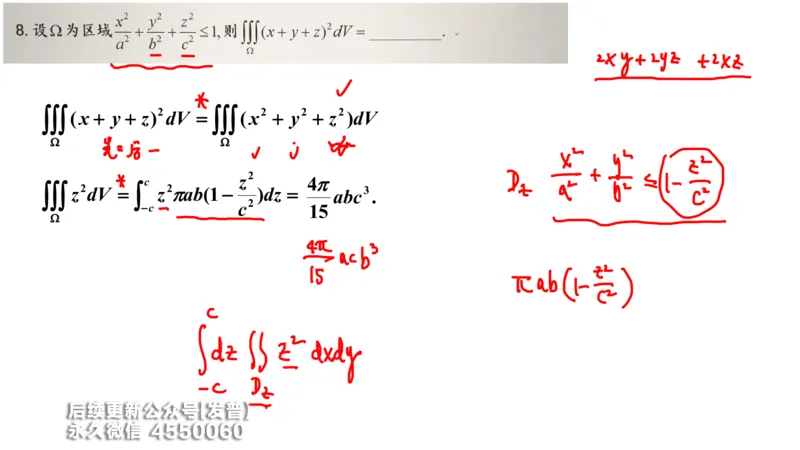 8. 设Ω为区域 x²/a² + y²/b² + z²/c² ≤ 1, 则 ∭_Ω (x + y + z)² dV = ________.
2xy + 2yz + 2xz
∭_Ω (x + y + z)² dV = ∭_Ω (x² + y² + z²) dV
D_z x²/a² + y²/b² ≤ 1 - z²/c²
∭_Ω z² dV = ∫_{-c}^{c} z² πab(1 - z²/c²) dz = 4π/15 abc³.
4π/15 acb³
πab(1 - z²/c²)
∫_{-c}^{c} dz ∬_{D_z} z² dxdy
后续更新公众号[发普]
永久微信 4550060